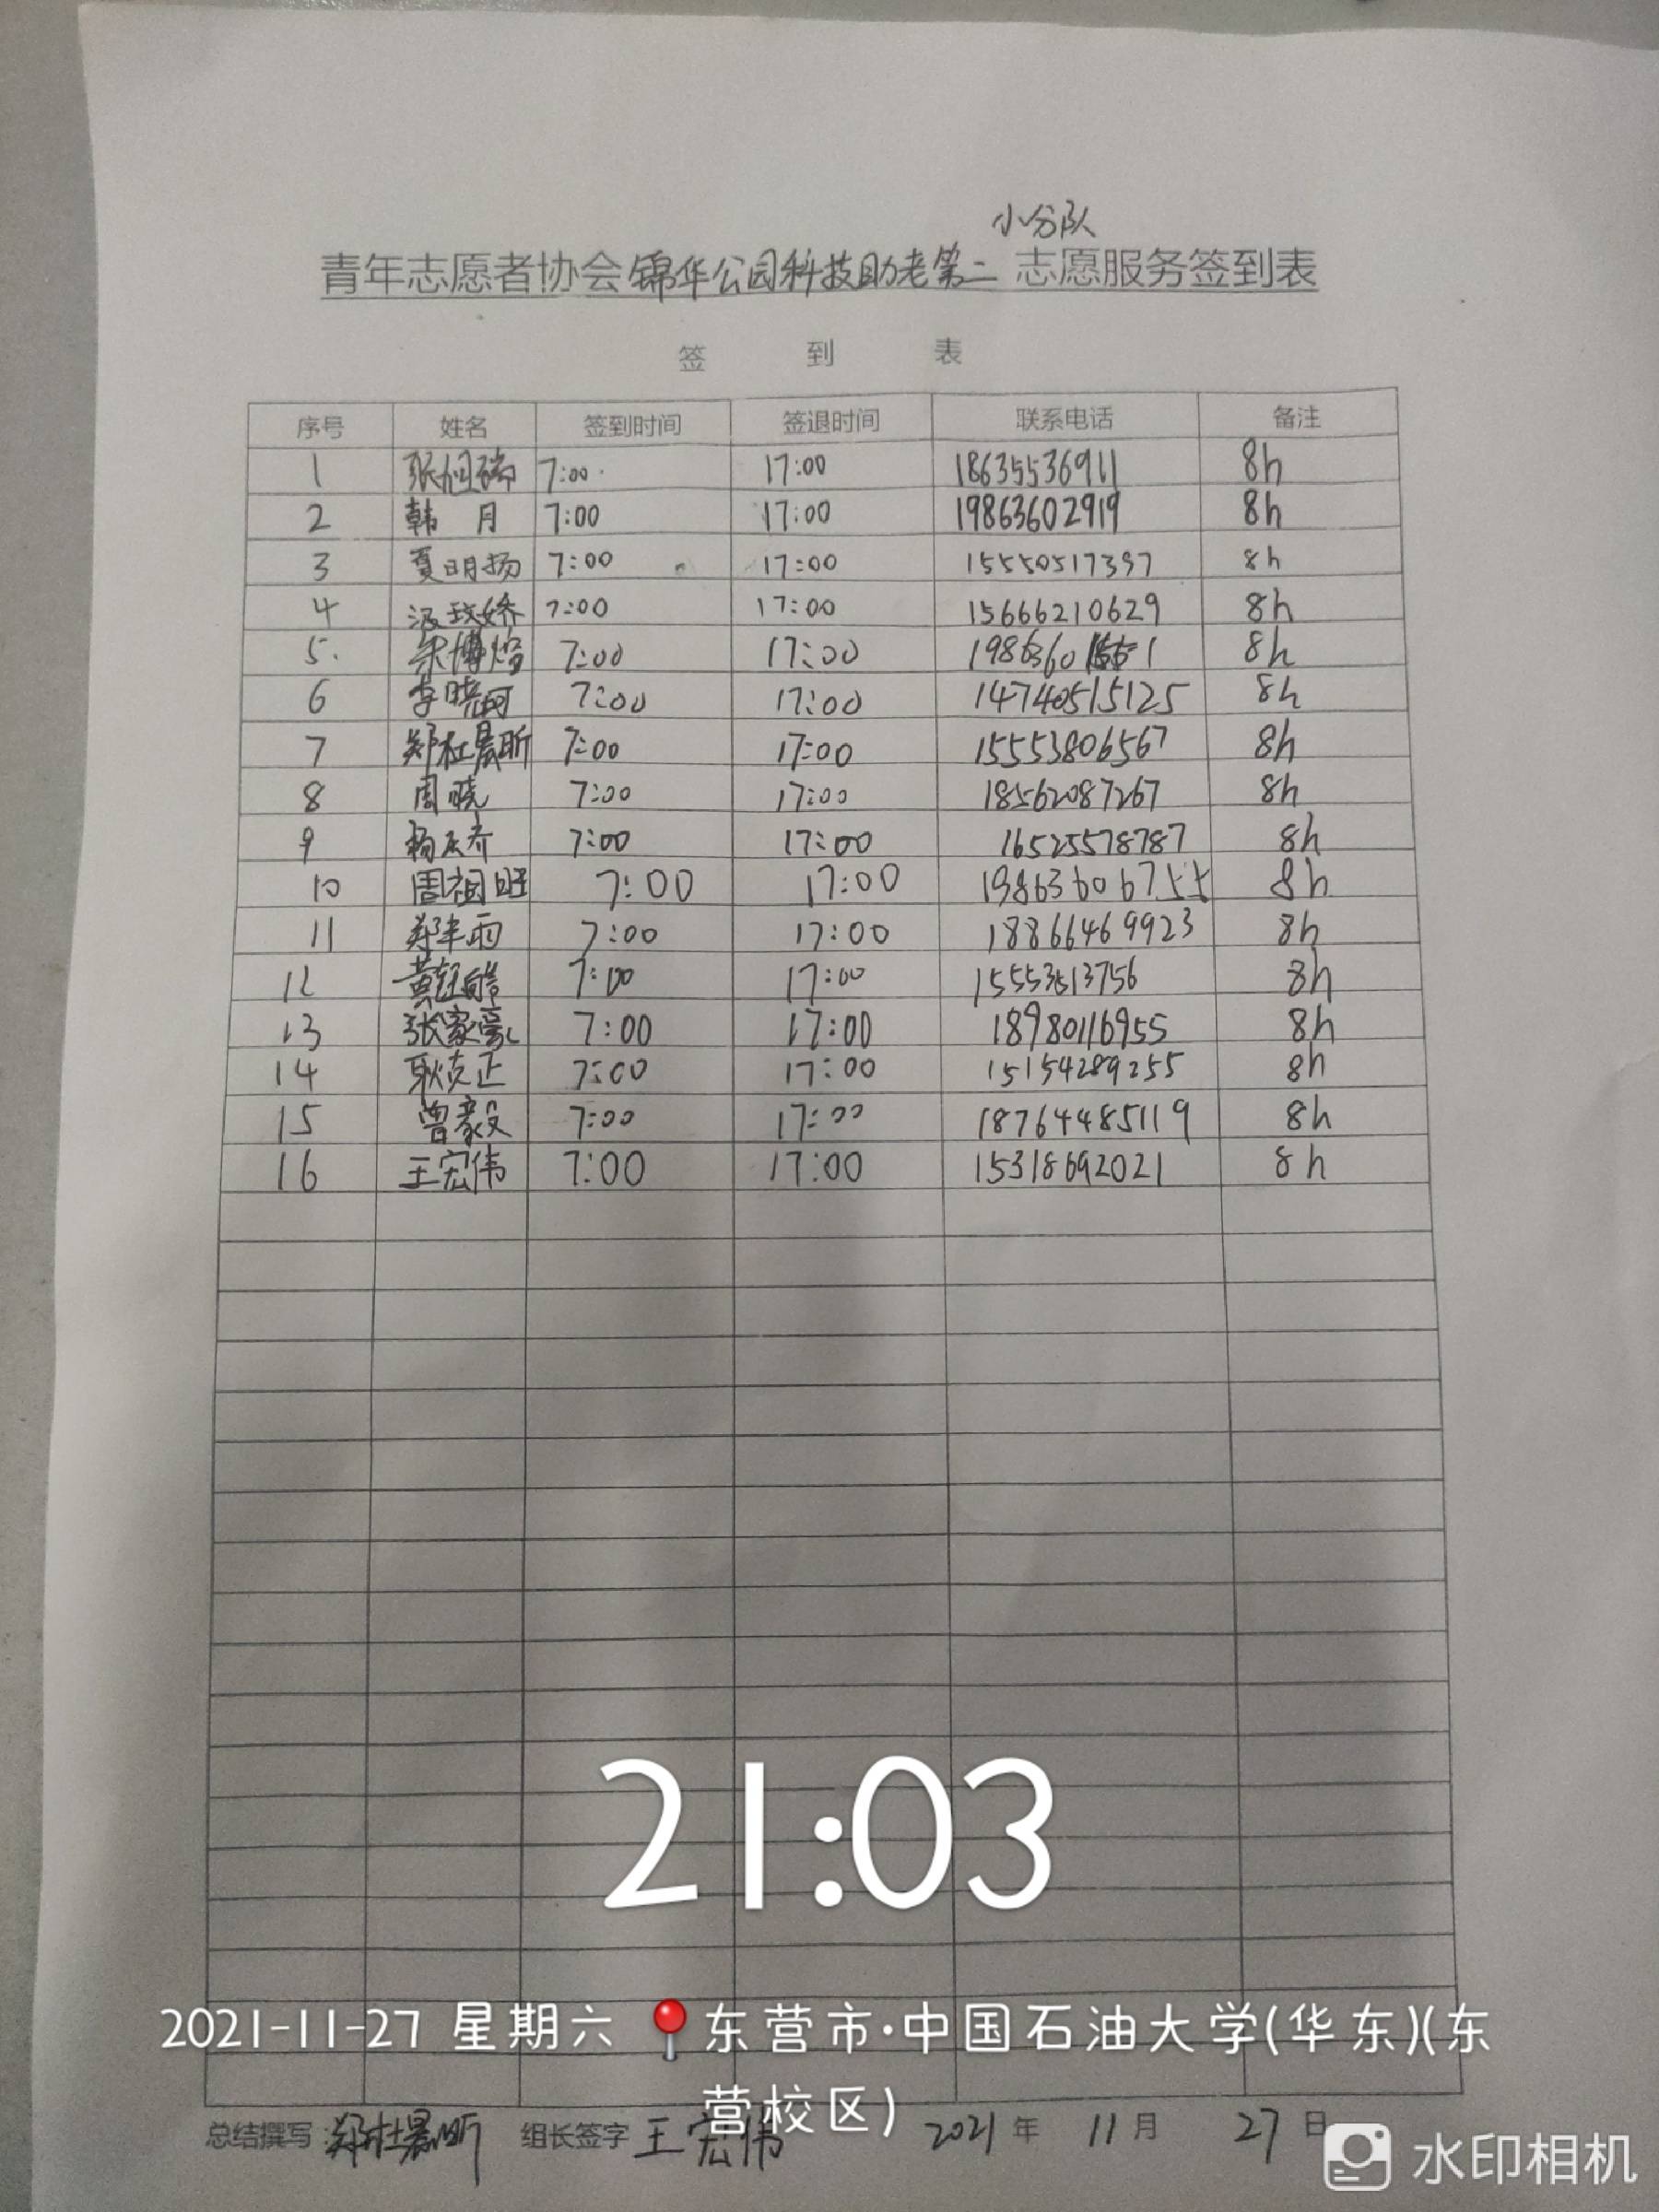 小分队
青年志愿者协会锦华公园科技助老第二志愿服务签到表
签 到 表
序号 姓名 签到时间 签退时间 联系电话 备注
1 张旭瑞 7:00 17:00 18635536911 8h
2 韩月 7:00 17:00 19863602919 8h
3 夏明扬 7:00 17:00 15550517397 8h
4 7:00 17:00 15666210629 8h
5. 7:00 17:00 8h
6 李晓珂 7:00 17:00 14740515125 8h
7 郑杜晨昕 7:00 17:00 15553806567 8h
8 周晓 7:00 17:00 18562087267 8h
9 7:00 17:00 16525578787 8h
10 周祖旺 7:00 17:00 19863606755 8h
11 郑丰雨 7:00 17:00 18866469923 8h
12 7:00 17:00 8h
13 张家豪 7:00 17:00 18980116955 8h
14 耿贞正 7:00 17:00 15154289255 8h
15 曾毅 7:00 17:00 18764485119 8h
16 王宏伟 7:00 17:00 15318692021 8h
21:03
2021-11-27 星期六 东营市·中国石油大学(华东)(东
营校区)
总结撰写:郑杜晨昕 组长签字 王宏伟 2021年 11月 27日
水印相机